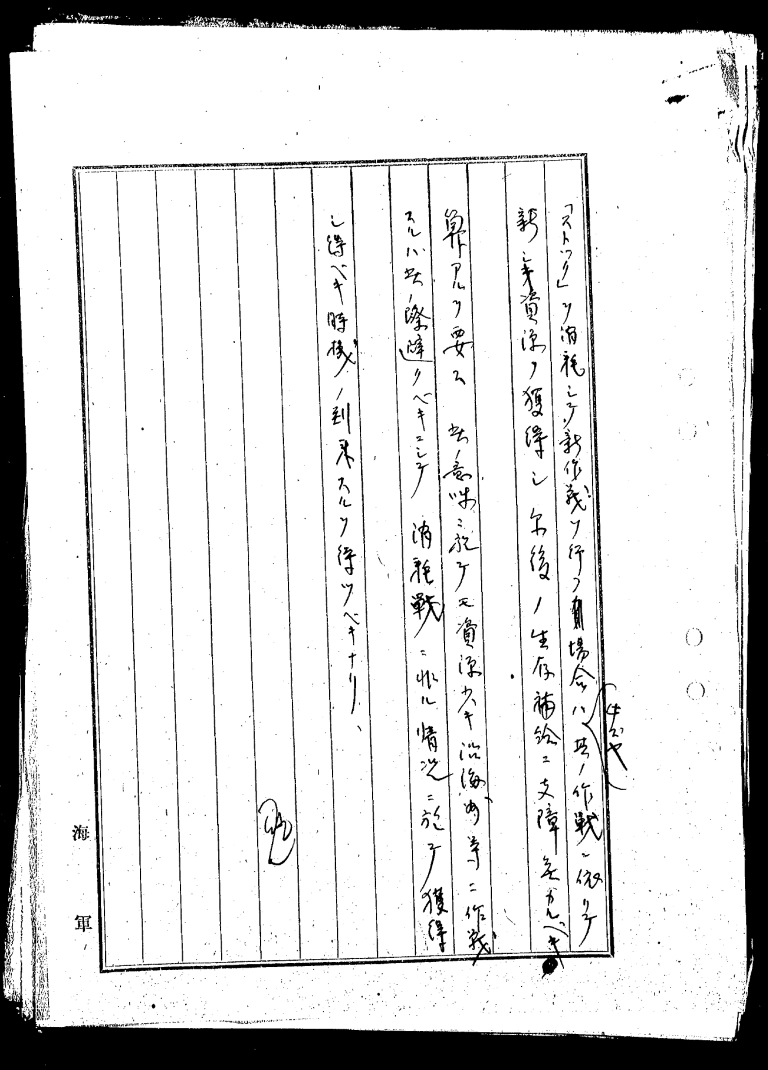 「ストック」ヲ消耗シテ新作戦ヲ行フ場合ハ其ノ作戦ニ依リテ
必ズヤ
新シキ資源ヲ獲得シ尓後ノ生存補給ニ支障無カルベキ
算アルヲ要ス 此ノ意味ニ於テモ資源少キ沿海州等ニ作戦
スルハ此ノ際避クベキニシテ 消耗戦ニ非ル情況ニ於テ獲得
シ得ベキ時機ノ到来スルヲ待ツベキナリ、
海軍